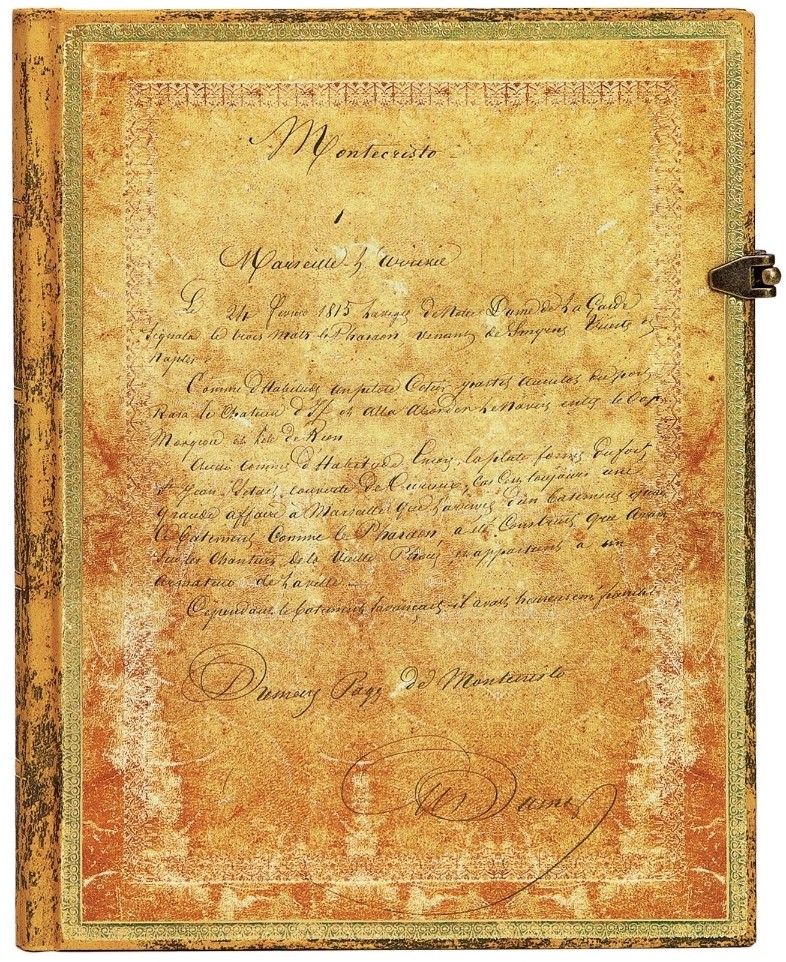 Montecristo
1
Marseille - L'arrivée
Le 24 février 1815 La vigie de Notre Dame de La Garde
Signala le trois mats le Pharaon venant de Smyrne Trieste et
Naples.
Comme d'habitude un pilote Cotier partit aussitot du port
Rasa le Chateau d'If et alla aborder Le Navire entre le Cap
Morgiou et l'ile de Rion
Aussi comme d'habitude encore, la plate forme du fort
St Jean s'etait couverte de Curieux, car C'est toujours une
grande affaire à Marseille que L'arrivée d'un batiment quand
Ce batiment Comme le Pharaon a été Construit gréé Arrimé
Sur les Chantiers de la Vieille Phocée, et appartient a un
Armateur de La ville —
Cependant le batiment s'avançait - il avait heureusement franchi
Premiere Page de Montecristo
Alex Dumas